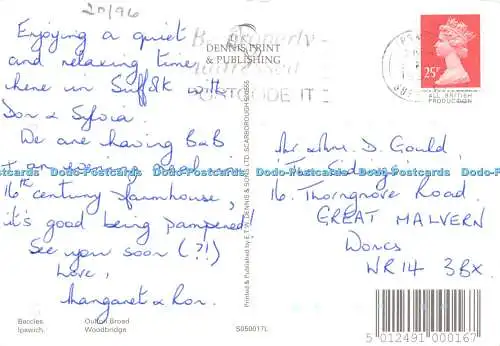 20/96
Enjoying a quiet
and relaxing time
here in Suffolk with
Don & Sylvia.
We are having B&B
+ an evening meal in
16th century farmhouse,
it's good being pampered!
See you soon (?!)
Love,
Margaret & Ron.
Beccles. Oulton Broad
Ipswich. Woodbridge
DENNIS PRINT
& PUBLISHING
Be properly
addressed
POSTCODE IT
Printed & Published by E.T.W. DENNIS & SONS LTD, SCARBOROUGH
S050017L
25P
ALL BRITISH
PRODUCTION
Mr & Mrs. D. Gould,
16. Thorngrove Road.
GREAT MALVERN
Worcs
WR14 3BX.
5 012491 000167
Postcards